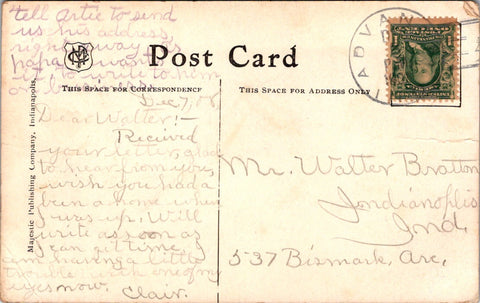 tell Artie to send
us his address
right away as
papa wants
to write to him
Post Card
THIS SPACE FOR CORRESPONDENCE
THIS SPACE FOR ADDRESS ONLY
ADVAN
Majestic Publishing Company, Indianapolis.
Dec 7, 08
Dear Walter:-
Recived
your letter, glad
to hear from you,
wish you had a
bin a home when
I was up. Will
write as soon as
I can git time, I
am having a little
trouble with one of my
eyes now.
Clair.
Mr. Walter Bratton
Indianoplis
Ind.
537 Bismark, Ave,